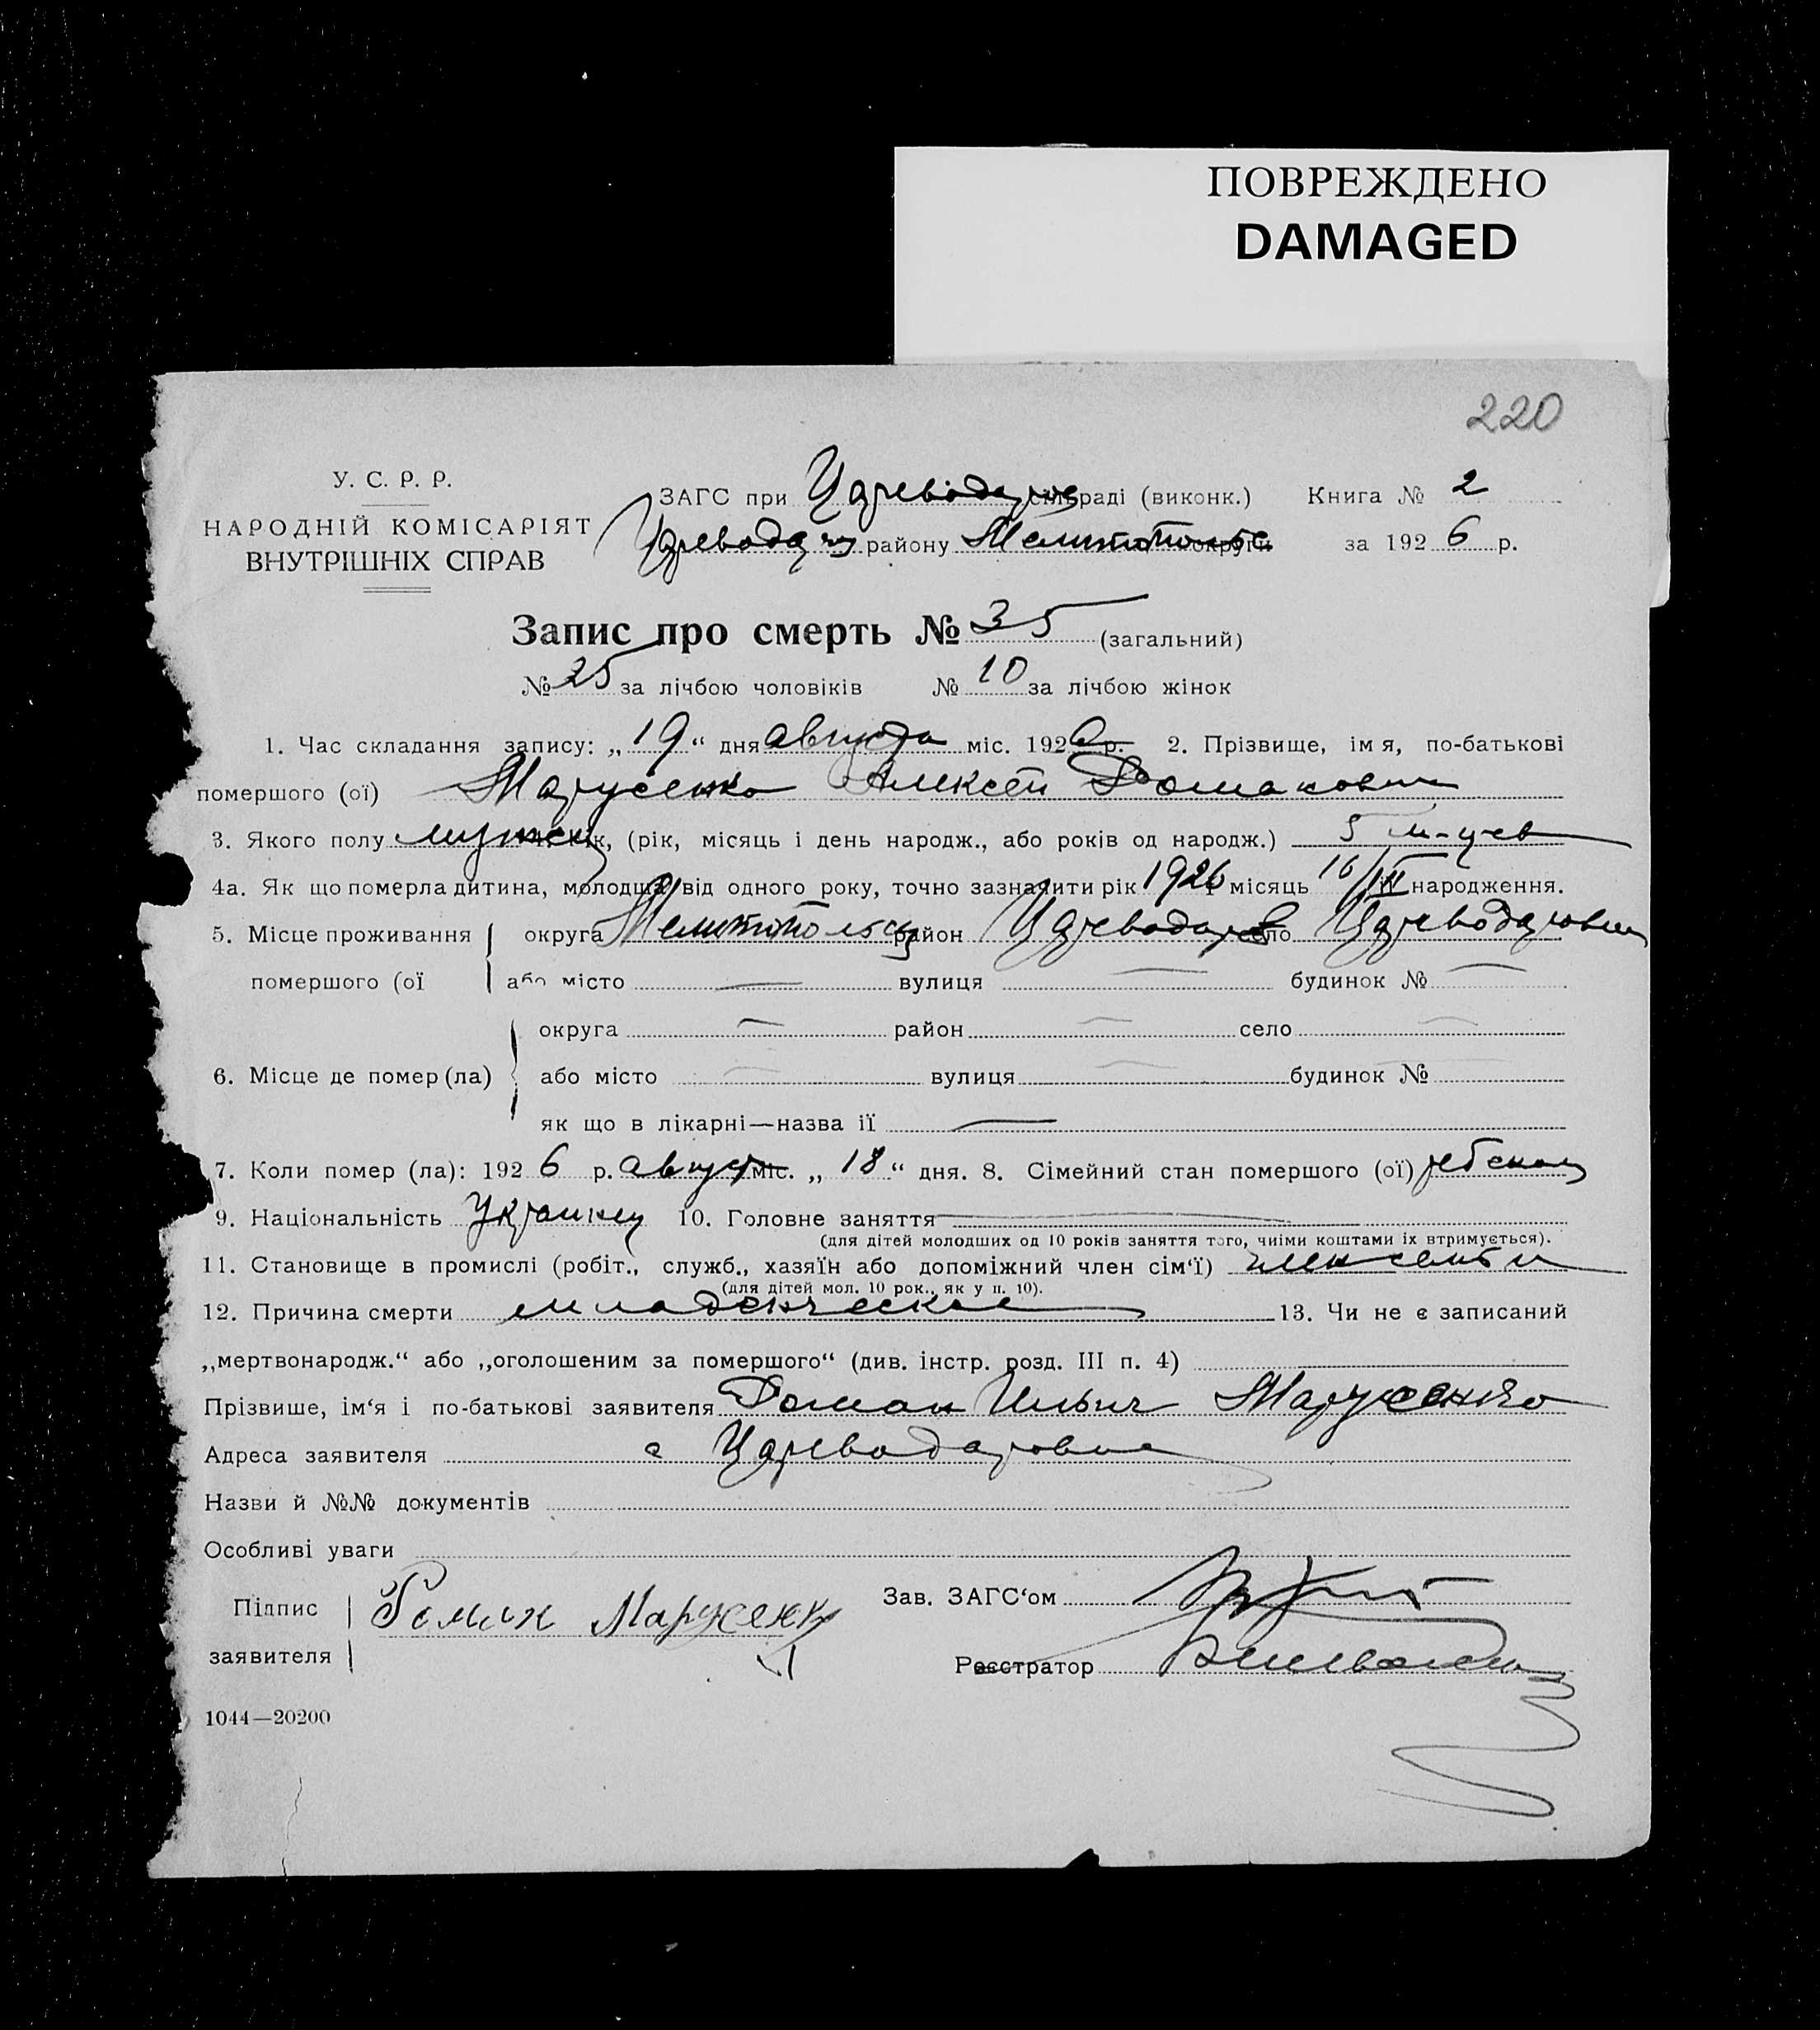 ПОВРЕЖДЕНО
DAMAGED
220
У. С. Р. Р.
НАРОДНІЙ КОМІСАРІЯТ
ВНУТРІШНІХ СПРАВ
ЗАГС при Цареводар сільраді (виконк.) Книга № 2
Цареводар району Мелитополь округи за 1926 р.
Запис про смерть № 35 (загальний)
№ 25 за лічбою чоловіків № 10 за лічбою жінок
1. Час складання запису: „19“ дня августа міс. 1926 р. 2. Прізвище, імя, по-батькові
помершого (ої) Марусенко Алексей Романович
3. Якого полу мужск вік, (рік, місяць і день народж., або років од народж.) 5 м-цев
4а. Як що померла дитина, молодша від одного року, точно зазначити рік 1926 місяць 16/III народження.
5. Місце проживання округа Мелитопольск район Цареводаров село Цареводаровка
помершого (ої або місто — вулиця — будинок № —
округа — район — село —
6. Місце де помер (ла) або місто — вулиця — будинок №
як що в лікарні—назва її —
7. Коли помер (ла): 1926 р. август міс. „18“ дня. 8. Сімейний стан помершого (ої) ребенок
9. Національність Украинец 10. Головне заняття —
(для дітей молодших од 10 років заняття того, чиїми коштами їх втримується).
11. Становище в промислі (робіт., служб., хазяїн або допоміжний член сім‘ї) член семьи
(для дітей мол. 10 рок., як у п. 10).
12. Причина смерти младенческая 13. Чи не є записаний
„мертвонародж.“ або „оголошеним за помершого“ (див. інстр. розд. III п. 4)
Прізвише, ім‘я і по-батькові заявителя Роман Ильич Марусенко
Адреса заявителя с Цареводаровка
Назви й №№ документів
Особливі уваги
Підпис Роман Марусенко Зав. ЗАГС‘ом
заявителя Реєстратор
1044—20200